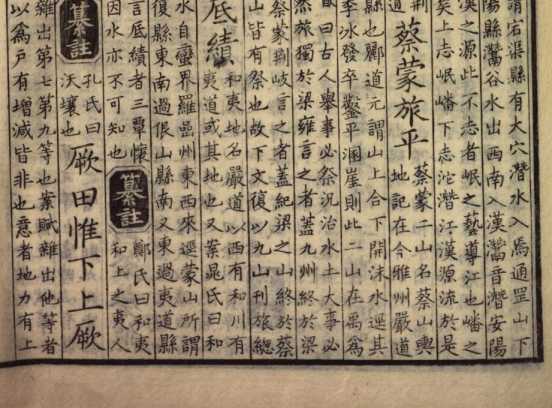 謂宕渠縣有大穴潛水入焉通罡山下
陽縣灊谷水出西南入漢灊音潛安陽
漢之源此不志者岷之藝導江也嶓之
矣上志岷嶓下志沱潛江漢源流於是
蔡蒙旅平
蔡蒙二山名蔡山輿
地記在今雅州嚴道
縣也酈道元謂山上合下開沫水逕其
李冰發卒鑿平溷崖則此二山在禹爲
歟曰古人舉事必祭況治水土大事必
然旅獨於梁雍言之者蓋九州終於梁
祭蒙荆岐言之者蓋紀梁之山終於蔡
山皆有祭也故下文復以九山刊旅緫
厎績
和夷地名嚴道以西有和川有
夷道或其地也又案晁氏曰和
水自蠻界羅嵒州東西來逕蒙山所謂
復縣東南過佷山縣南又東過夷道縣
言厎績者三覃懷
因水亦不可知也
纂註
鄭氏曰和夷
和上之夷人
纂註
孔氏曰
沃壤也
厥田惟下上厥
雜出第七第九等也案賦雜出他等者
以爲戶有增減皆非也意者地力有上